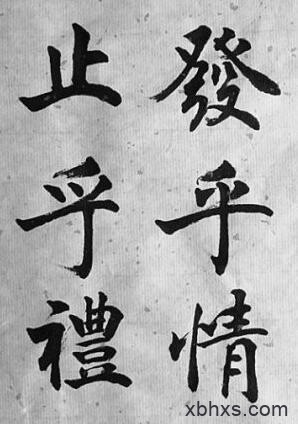 發乎情
止乎禮
xbhxs.com